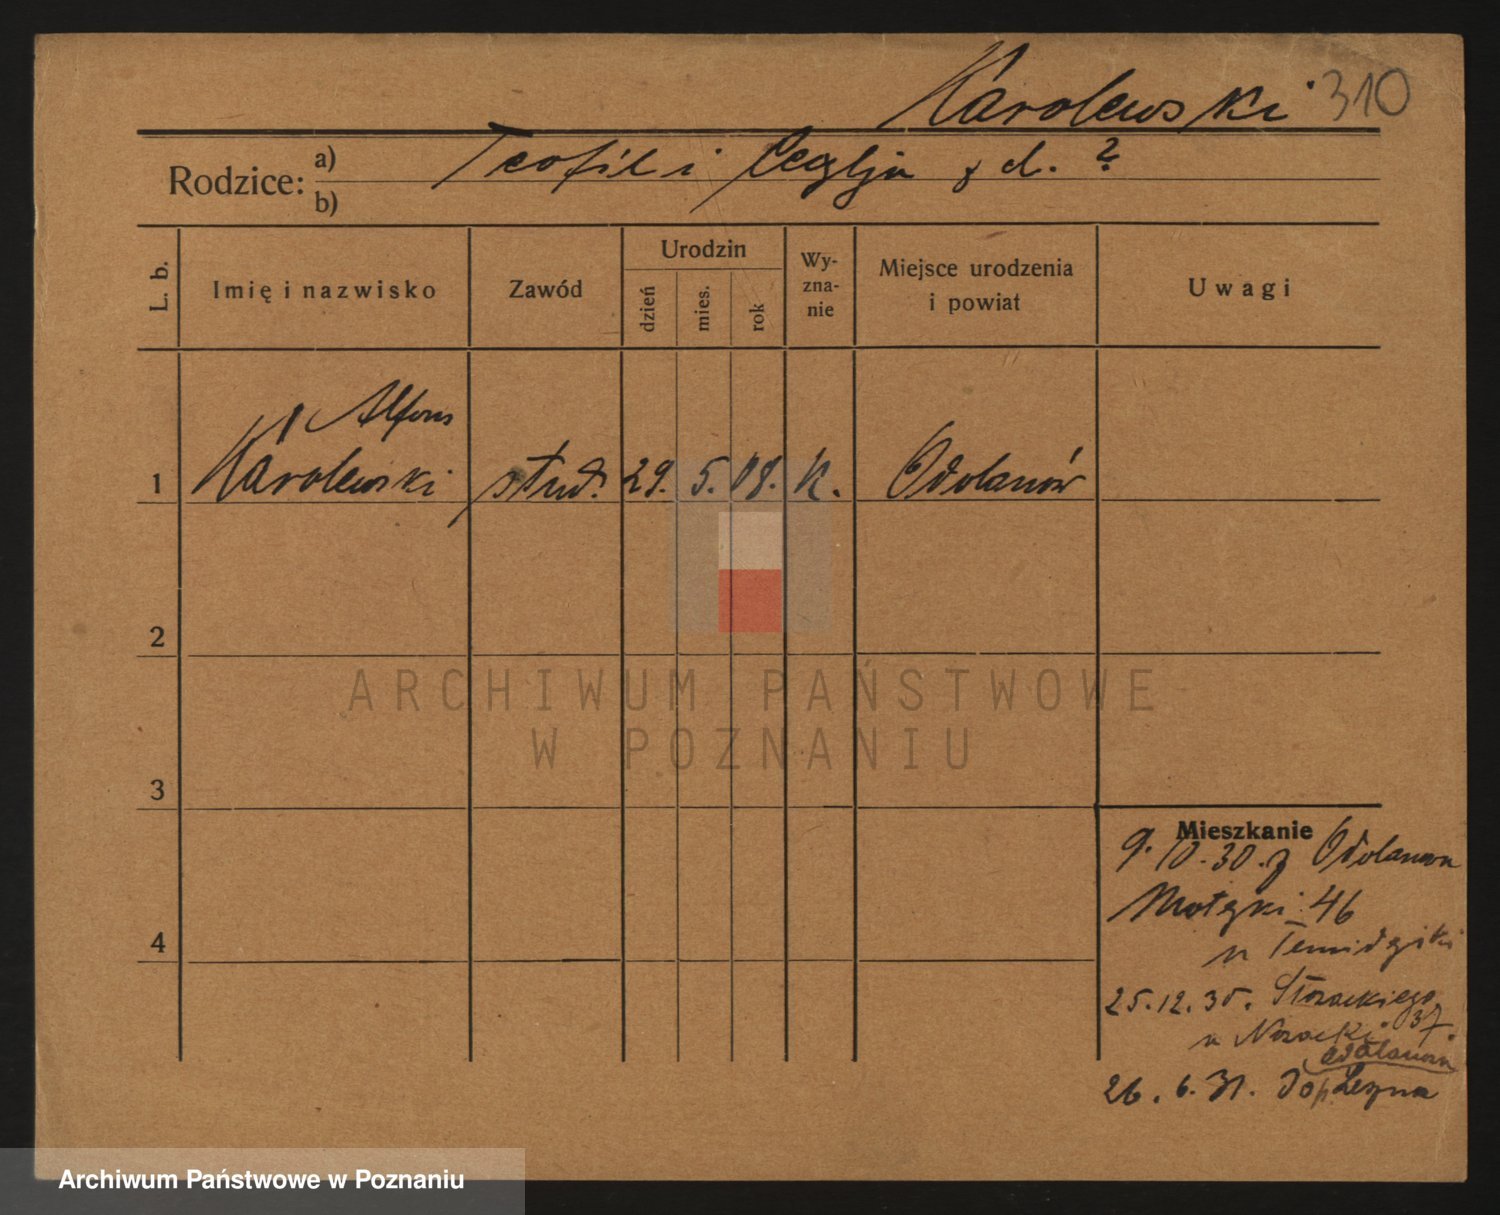 Karolewski 310
Rodzice: a) Teofil i Cecylja z d. ?
b)
L. b.
Imię i nazwisko
Zawód
Urodzin
dzień
mies.
rok
Wy-
zna-
nie
Miejsce urodzenia
i powiat
Uwagi
Alfons
1 Karolewski stud. 29. 5. 08. K. Odolanów
2
3
4
Mieszkanie
9.10.30. z Odolanowa
Matejki 46
u
25.12.30.
u 37.
Odolanów
26.6.31. do
ARCHIWUM PAŃSTWOWE
W POZNANIU
Archiwum Państwowe w Poznaniu